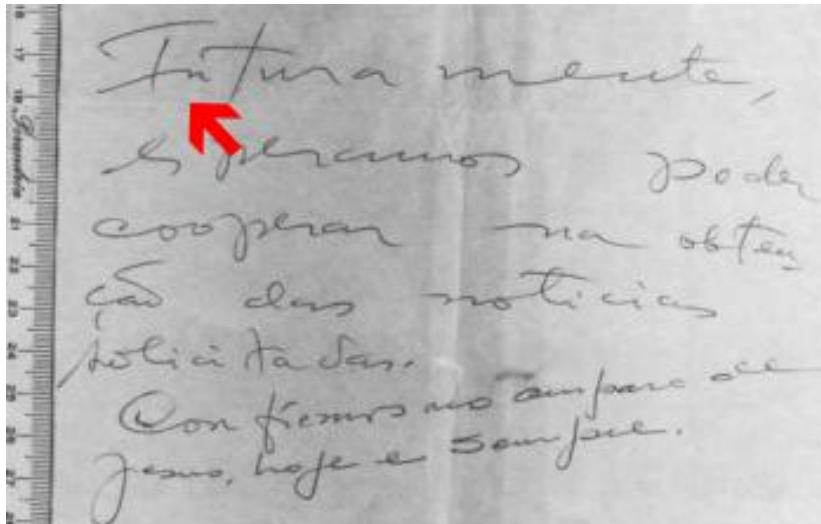 Futuramente,
esperamos poder
cooperar na obten
ção das noticias
solicitadas.
Confiemos no amparo de
Jesus, hoje e sempre.
16
17
18
21
22
23
24
25
26
27
28